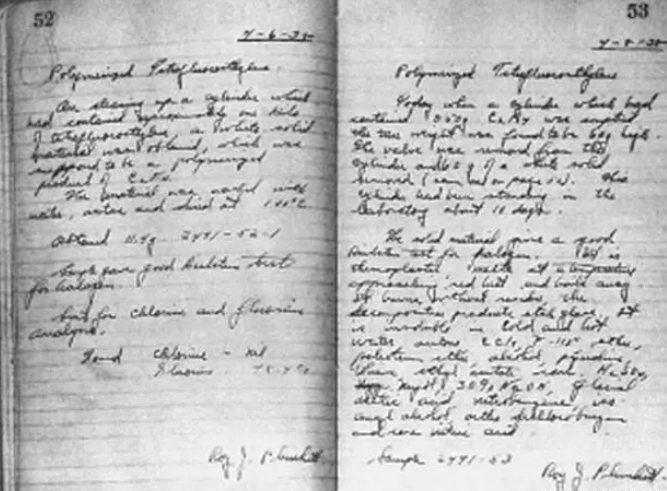 52
4-6-38
Polymerized Tetrafluoroethylene
On cleaning up a cylinder which
had contained approximately one kilo
of tetrafluoroethylene, a white solid
material was obtained, which was
supposed to be a polymerized
product of C2F4.
The material was washed with
water, and dried at
Obtained 11.4g 2491-52-1
Sample gave good Beilstein test
for halogen.
for chlorine and fluorine
analysis.
Found chlorine - nil
Fluorine
Roy J. Plunkett
53
Polymerized Tetrafluoroethylene
Today when a cylinder which had
contained C2F4 was emptied
the weight was found to be 60g high.
The valve was removed from the
cylinder and of a white solid
removed (on page 52). This
cylinder had been standing in the
laboratory about 10 days.
The solid material gave a good
Beilstein test for halogen. It is
thermoplastic, melts at a temperature
approaching red heat, and boils away.
It burns without residue, the
decomposition products etch glass. It
is insoluble in cold and hot
water, ether,
petroleum ether, alcohol, pyridine,
ethyl acetate
30% NaOH, glacial
acetic acid, nitrobenzene, iso
amyl alcohol, ortho
and conc nitric acid.
Sample 2491-53
Roy J. Plunkett